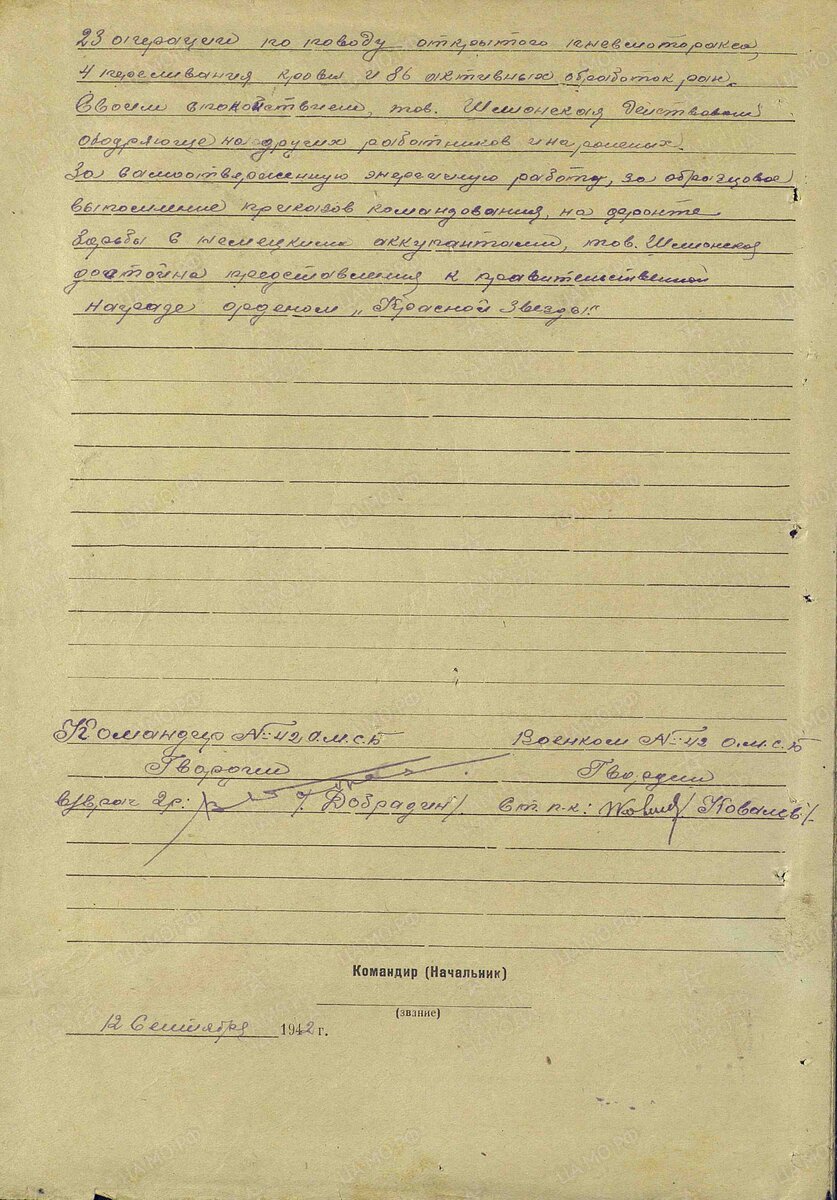 23 операции по поводу открытого пневмоторакса,
4 переливания крови и 86 активных обработок ран.
Своим спокойствием, тов. Шлионская действовала
ободряюще на других работников и на раненых.
За самоотверженную энергичную работу, за образцовое
выполнение приказов командования, на фронте
борьбы с немецкими аккупантами, тов. Шлионская
достойна представления к правительственной
награде орденом „Красной Звезды".
Командир № 42 О.М.С.Б Военком № 42 О.М.С.Б
Гвардии Гвардии
в/врач 2р: /Добрадин/. Ст. п.к: /Ковалёв/.
Командир (Начальник)
(звание)
12 Сентября 1942 г.